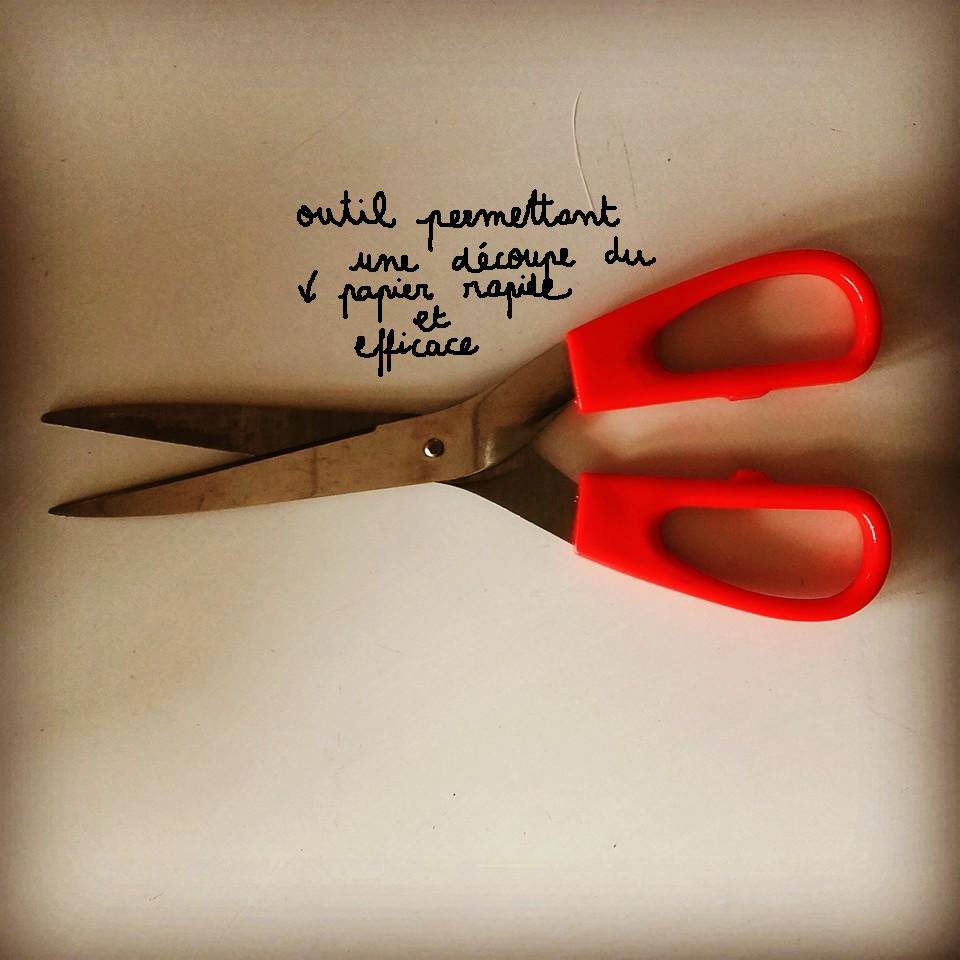 outil permettant
une découpe du
papier rapide
et
efficace